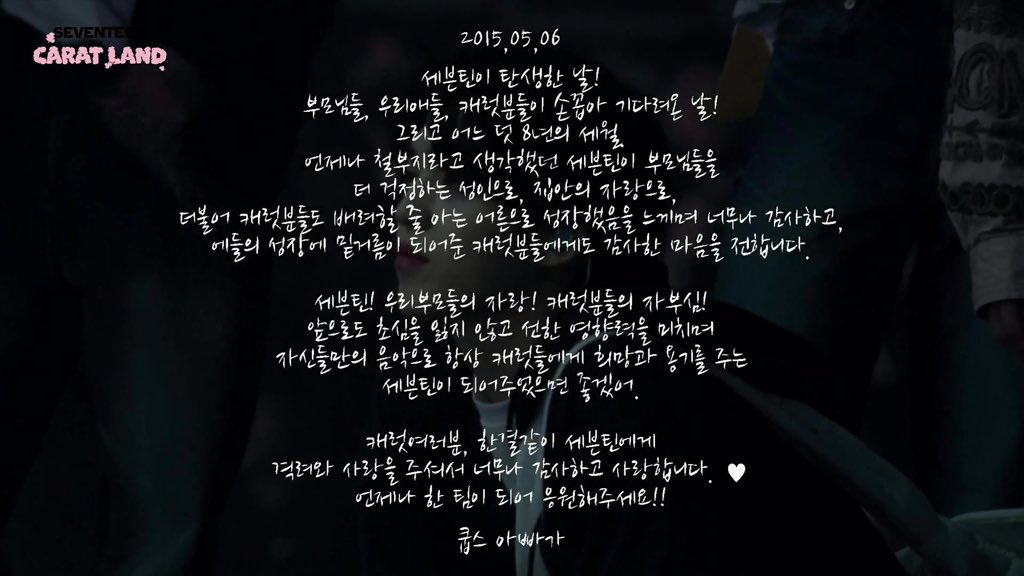 SEVENTEEN
CARAT LAND
2015.05.06
세븐틴이 탄생한 날!
부모님들, 우리애들, 캐럿분들이 손꼽아 기다려온 날!
그리고 어느 덧 8년의 세월,
언제나 철부지라고 생각했던 세븐틴이 부모님들을
더 걱정하는 성인으로, 집안의 자랑으로,
더불어 캐럿분들도 배려할 줄 아는 어른으로 성장했음을 느끼며 너무나 감사하고,
에들의 성장에 밑거름이 되어준 캐럿분들에게도 감사한 마음을 전합니다.
세븐틴! 우리부모들의 자랑! 캐럿분들의 자부심!
앞으로도 초심을 잃지 않고 선한 영향력을 미치며
자신들만의 음악으로 항상 캐럿들에게 희망과 용기를 주는
세븐틴이 되어주었으면 좋겠어.
캐럿여러분, 한결같이 세븐틴에게
격려와 사랑을 주셔서 너무나 감사하고 사랑합니다. ♥
언제나 한 팀이 되어 응원해주세요!!
쿱스 아빠가